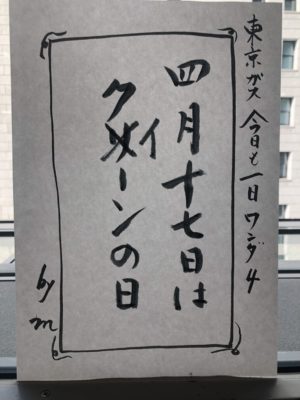 東京ガス 今日も一日ワンダ4
四月十七日は
クイーンの日
by m